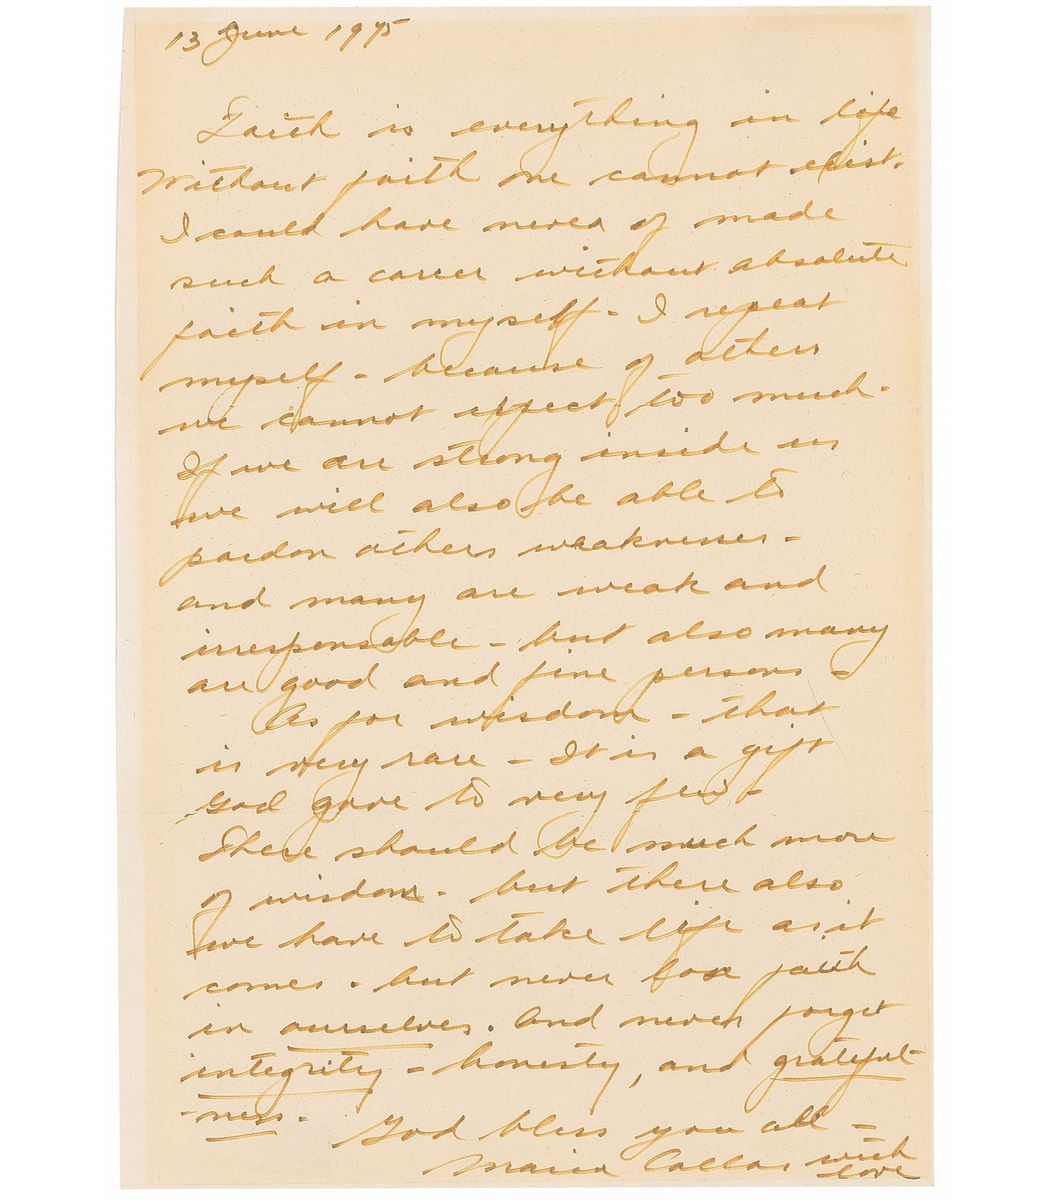 13 June 1975
Faith is everything in life
Without faith one cannot exist.
I could have never of made
such a career without absolute
faith in myself - I repeat
myself - because of others
we cannot expect too much -
If we are strong inside us
we will also be able to
pardon others weaknesses -
and many are weak and
irresponsable - but also many
are good and fine persons -
As for wisdom - that
is very rare - It is a gift
God gave to very few -
There should be much more
of wisdom - but there also
we have to take life as it
comes - but never lose faith
in ourselves. And never forget
integrity - honesty, and grateful-
-ness.
God bless you all -
Maria Callas with
love